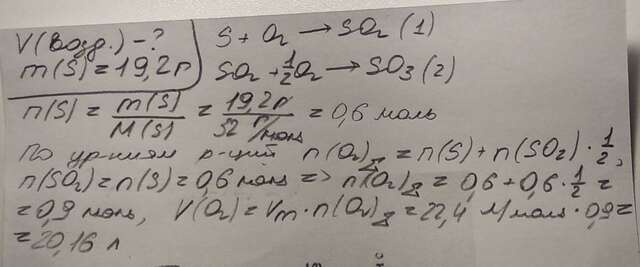 V(возд.) - ? S + O₂ → SO₂ (1)
m(S) = 19,2 г SO₂ + ½O₂ → SO₃ (2)
n(S) = m(S)/M(S) = 19,2 г/32 г/моль = 0,6 моль
По ур-ниям р-ций n(O₂)Σ = n(S) + n(SO₂) · ½,
n(SO₂) = n(S) = 0,6 моль => n(O₂)Σ = 0,6 + 0,6 · ½ =
= 0,9 моль, V(O₂) = Vm · n(O₂)Σ = 22,4 л/моль · 0,9 =
= 20,16 л